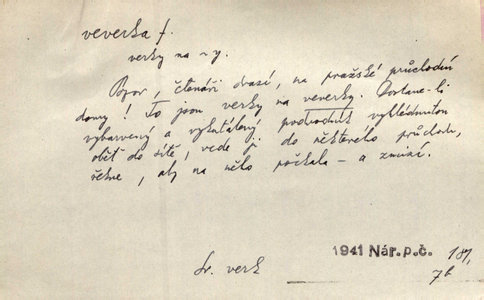 veverka f.
verky na ~y.
Pozor, čtenáři drazí, na pražské průchodní
domy! To jsou verky na veverky. Dostane-li
vybarvený a vykutálený podvodník vyhlédnutou
oběť do sítě, vede ji do některého průchodu,
řekne, aby na něho počkala – a zmizí.
sr. verk
1941 Nár.p.č. 181,
7b